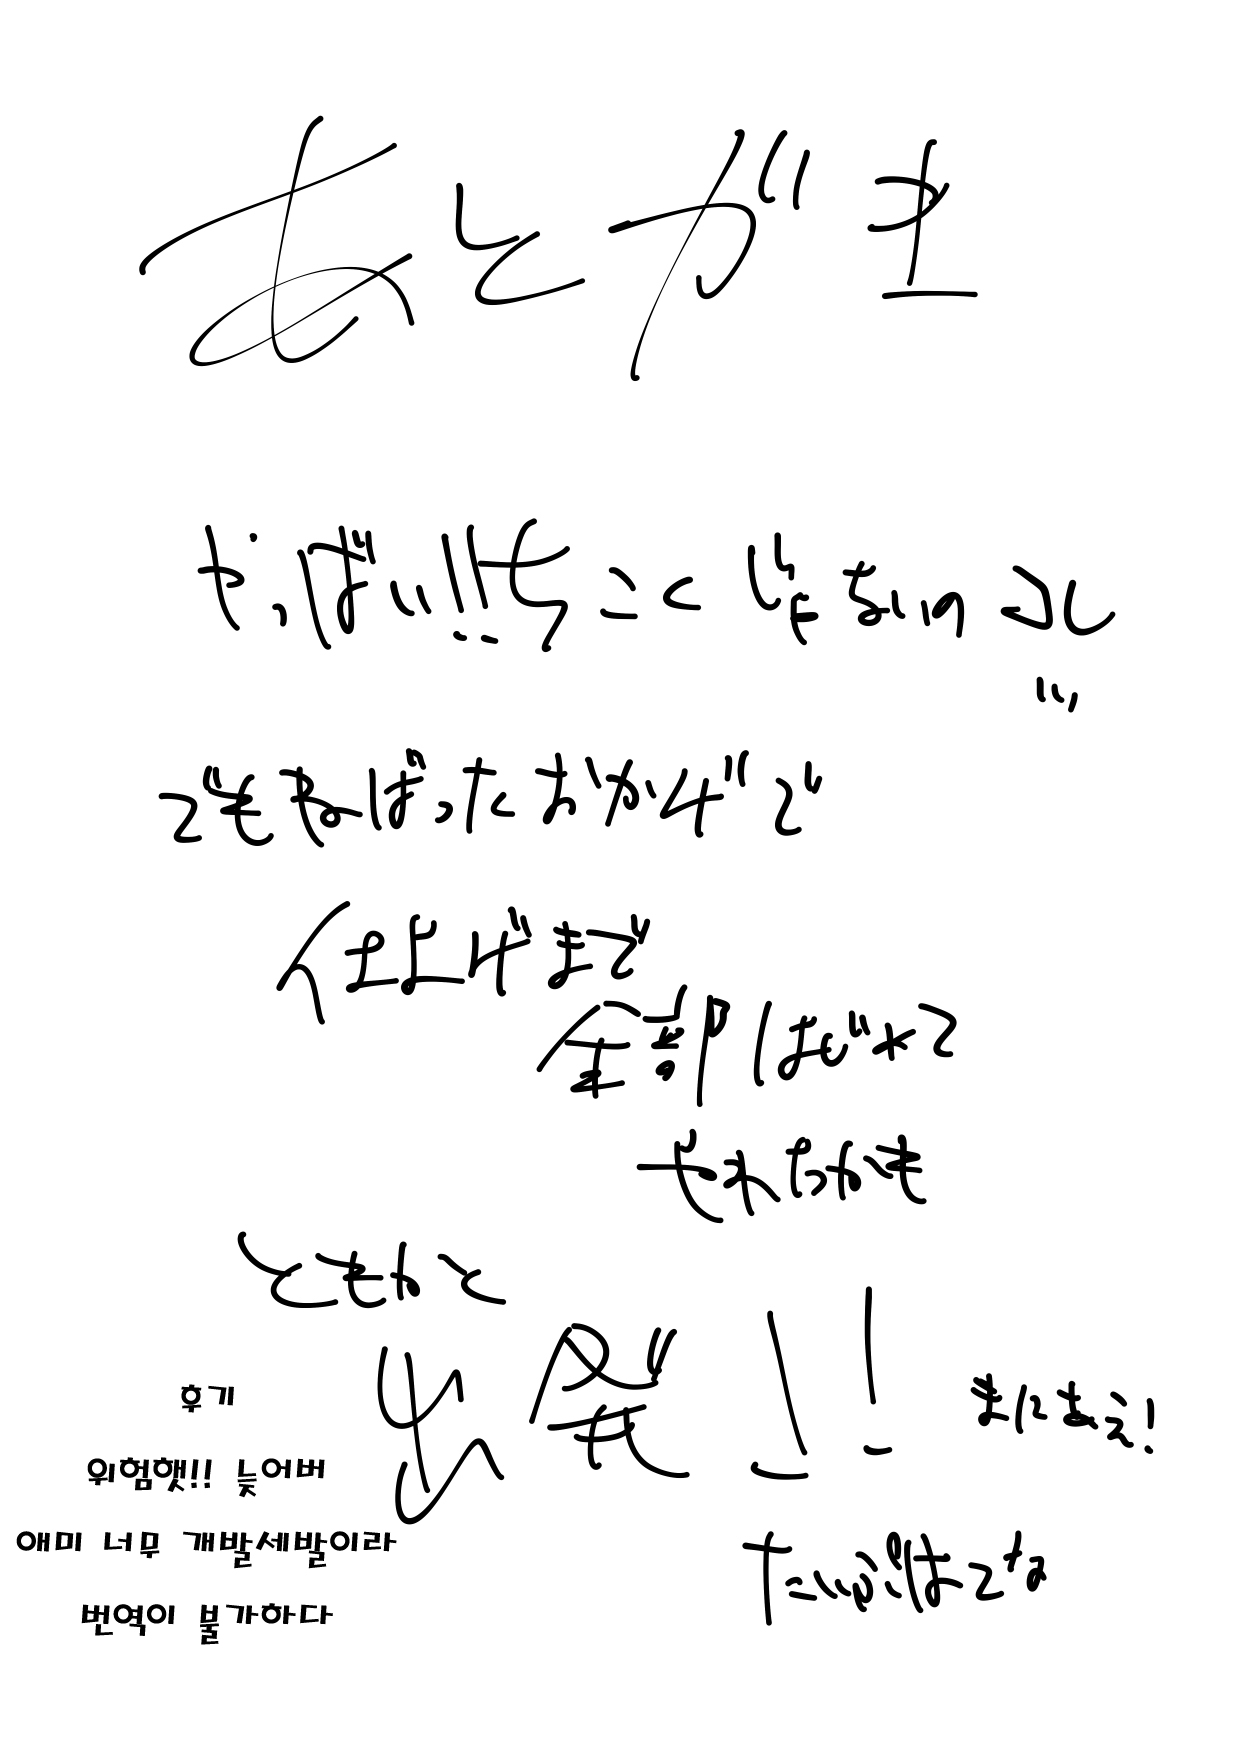 あとがき
やっばい!!ちこくじゃないの
でもねばったおかげで
仕上げまで
全部はじめて
やれたかも
ともかく
出発!!
まにあえ!
たいぷはてな
후기
위험햇!! 늦어버
애미 너무 개발세발이라
번역이 불가하다